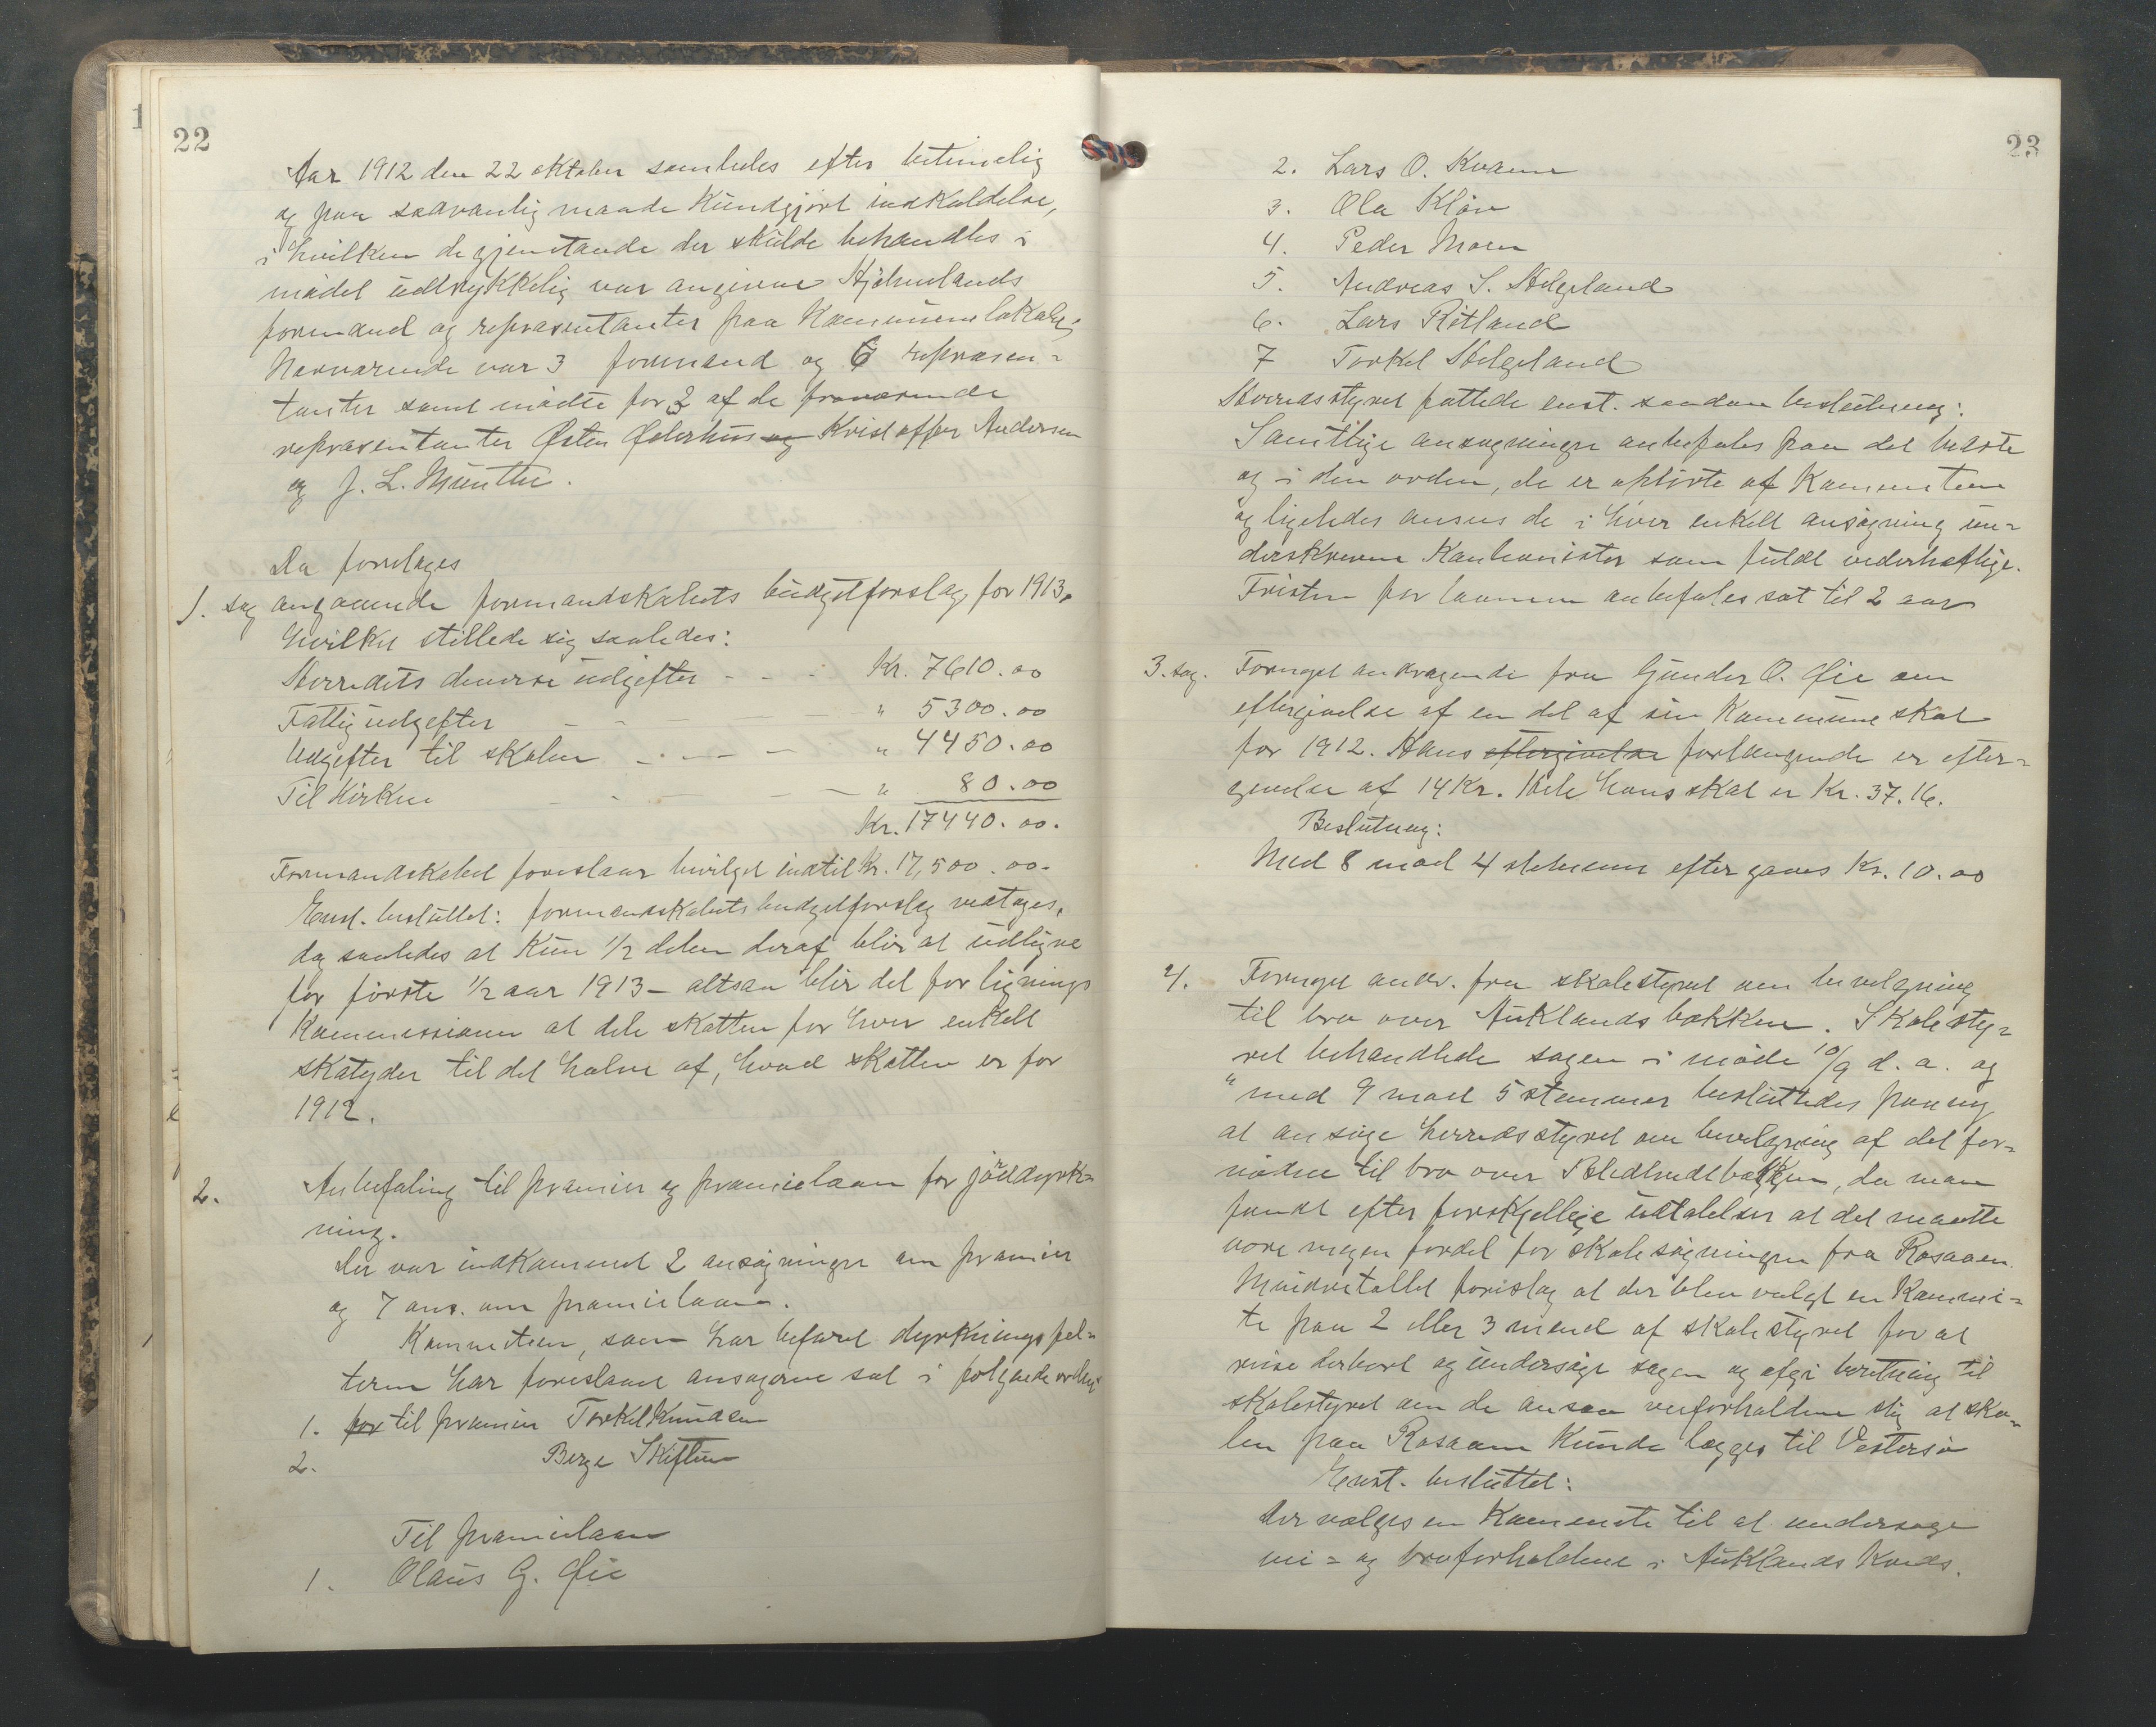 22
Aar 1912 den 22 oktober samledes efter betimelig
og paa sædvanlig maade kundgjørt indkaldelse,
i hvilken de gjenstande der skulde behandles i
mødet udtrykkelig var angivne Hjelmelands
formænd og repræsentanter paa Kommunelokalet.
Nærværende var 3 formænd og 6 repræsen=
tanter samt mødte for 3 af de fraværende
repræsentanter Østen Østerhus og Kristoffer Andersen
og J. L. Münthe.
Da foretages
1. sag angaaende formandskabets budgetforslag for 1913,
hvilket stillede sig saaledes:
Herredets diverse udgifter - - - Kr. 7610.00
Fattigudgifter - - - " 5300.00
Udgifter til skolen - - - " 4450.00
Til Kirken - - - " 80.00
Kr. 17440.00.
Formandskabet foreslaar bevilget indtil Kr. 17,500.00.
Enst. besluttet: formandskabets budgetforslag vedtages,
dog saaledes at kun 1/2 delen deraf blir at udligne
for første 1/2 aar 1913 - altsaa blir det for lignings
kommissionen at dele skatten for hver enkelt
skatyder til det halve af, hvad skatten er for
1912.
2. Anbefaling til præmier og præmielaan for jorddyrk=
ning.
Der var indkommet 2 ansøgninger om præmier
og 7 ans. om præmielaan.
Kommiteen, som har befaret dyrkningsfel=
terne har foreslaaet ansøgerne sat i følgende orden:
1. for til præmier Torkel Knudsen
2. Berge Skiftun
Til præmielaan
1. Olaus G. Øie
23
2. Lars O. Kvame
3. Ola Kløv
4. Peder Moen
5. Andreas S. Helgeland
6. Lars Ritland
7 Torkel Helgeland
Herredsstyret fattede enst. saadan beslutning:
Samtlige ansøgninger anbefales paa det bedste
og i den orden, de er opførte af Kommiteen
og ligeledes ansees de i hver enkelt ansøgning un=
derskrevne Kautionister som fuldt vederhæftige.
Fristen for laanene anbefales sat til 2 aar
3. sag. Foretaget andragende fra Gunder O. Øie om
eftergivelse af en del af sin Kommuneskat
for 1912. Hans eftergivelse forlangende er efter=
givelse af 14 Kr. Hele hans skat er Kr. 37.16.
Beslutning:
Med 8 mod 4 stemmer eftergaves Kr. 10.00
4. Foretaget andr. fra skolestyret om bevilgning
til bro over Auklandsbækken. Skolesty=
ret behandlede sagen i møde 10/9 d. a. og
"med 9 mod 5 stemmer besluttedes paany
at ansøge herredsstyret om bevilgning af det for=
nødne til bro over bækken, da man
fandt efter forskjellige udtalelser at det maatte
være megen fordel for skolesøgningen fra Rosaaen.
Mindretallet foreslog at der blev valgt en Kommi=
te paa 2 eller 3 mænd af skolestyret for at
reise derbort og undersøge sagen og afgi beretning til
skolestyret om de ansaa veiforholdene slig at sko=
len paa Rosaaen kunde lægges til Vestersjø
Enst. besluttet:
Der vælges en Kommite til at undersøge
vei= og broforholdene i Auklands Kreds.